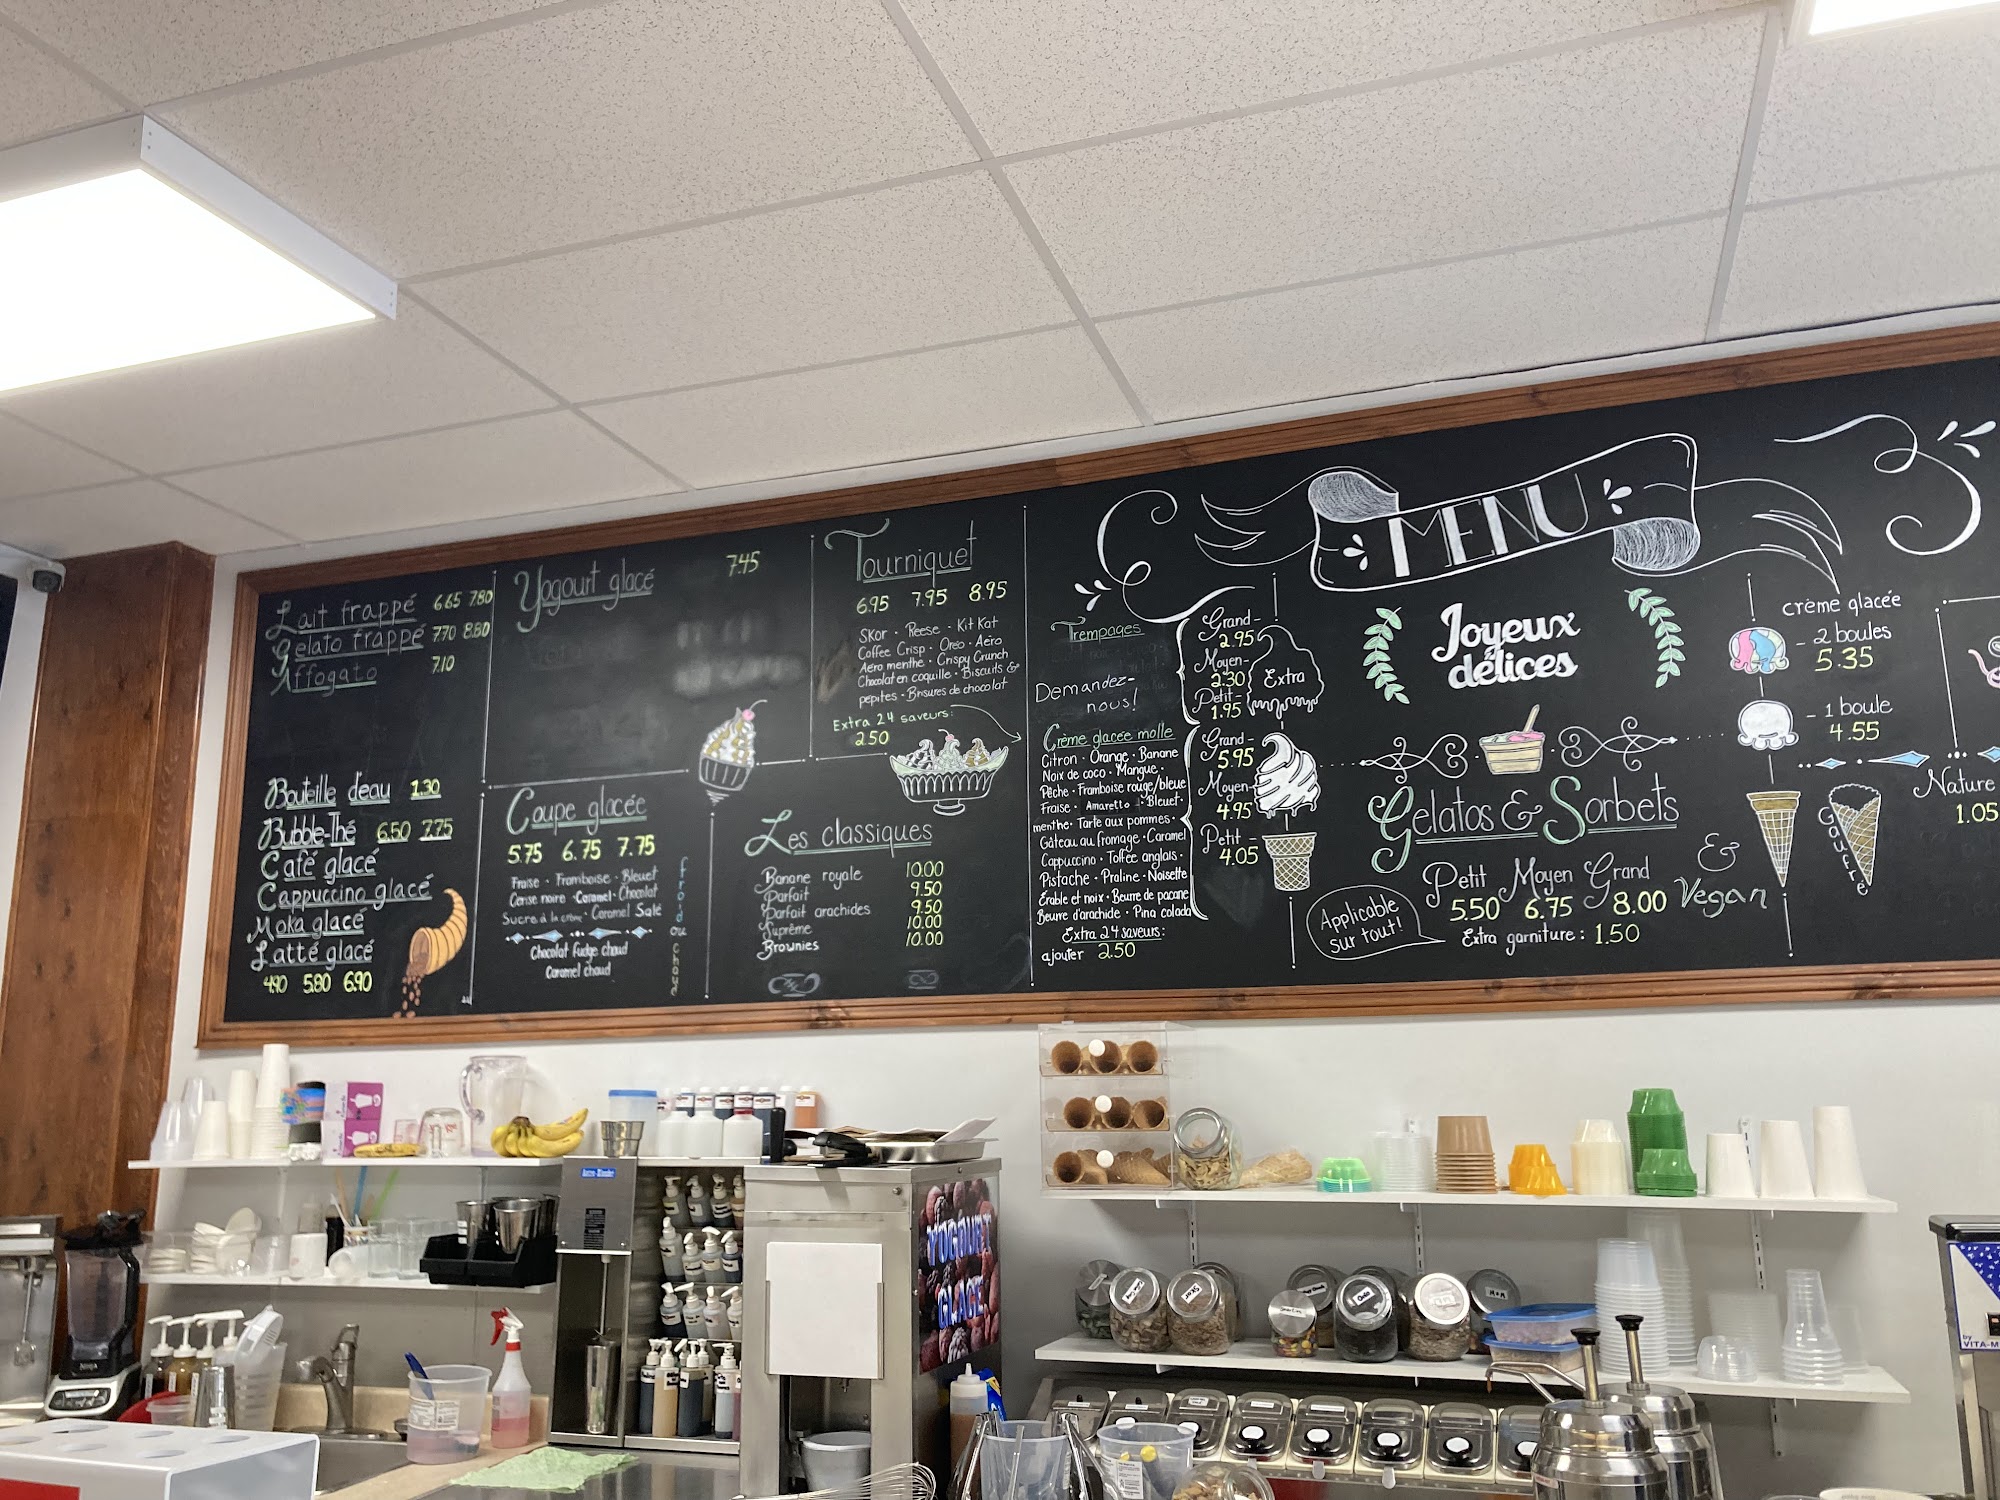 Lait frappé 6.65 7.80
Gelato frappé 7.70 8.80
Affogato 7.10
Bouteille d'eau 1.30
Bubble-Thé 6.50 7.75
Café glacé
Cappuccino glacé
Moka glacé
Latté glacé
4.90 5.80 6.90
Yogourt glacé 7.45
Coupe glacée
5.75 6.75 7.75
Fraise · Framboise · Bleuet
Cerise noire · Caramel · Chocolat
Sucre à la crème · Caramel Salé
Chocolat fudge chaud
Caramel chaud
froid ou chaud
Tourniquet
6.95 7.95 8.95
Skor · Reese · Kit Kat
Coffee Crisp · Oreo · Aéro
Aéro menthe · Crispy Crunch
Chocolat en coquille · Biscuits &
pépites · Brisures de chocolat
Extra 24 saveurs:
2.50
Les classiques
Banane royale 10.00
Parfait 9.50
Parfait arachides 9.50
Suprême 10.00
Brownies 10.00
MENU
Joyeux
délices
Trempages
Demandez-
nous!
Grand -
2.95
Moyen -
2.30
Petit -
1.95
Extra
Crème glacée molle
Citron · Orange · Banane
Noix de coco · Mangue ·
Pêche · Framboise rouge/bleue
Fraise · Amaretto · Bleuet ·
menthe · Tarte aux pommes ·
Gâteau au fromage · Caramel
Cappuccino · Toffee anglais ·
Pistache · Praline · Noisette
Érable et noix · Beurre de pacane
Beurre d'arachide · Pina colada
Extra 24 saveurs:
ajouter 2.50
Grand -
5.95
Moyen -
4.95
Petit -
4.05
Gelatos & Sorbets
& Vegan
Petit Moyen Grand
5.50 6.75 8.00
Extra garniture: 1.50
Applicable
sur tout!
crème glacée
- 2 boules
5.35
- 1 boule
4.55
Gaufré
Nature
1.05
YOGOURT
GLACÉ
Ninja
by
VITA-M